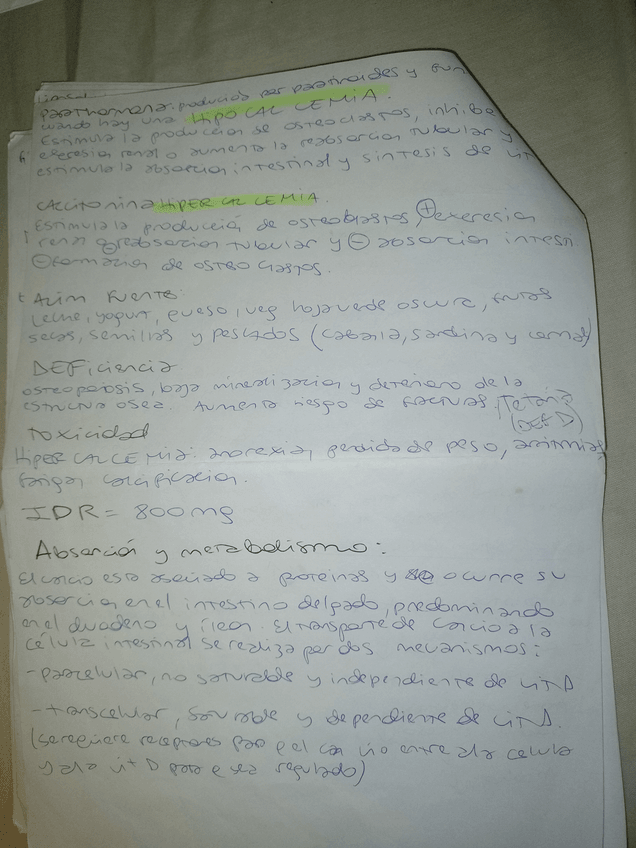 Parathormona: producida por paratiroides y fun
cuando hay una HIPOCALCEMIA.
Estimula la produccion de osteoclastos, inhibe
excresion renal o aumenta la reabsorcion tubular y
estimula la absorcion intestinal y sintesis de vit
Calcitonina HIPERCALCEMIA.
Estimula la producción de osteoblastos, ⊕ excresion
renal ⊖ reabsorcion tubular y ⊖ absorcion intesti
⊖ formacion de osteoclastos.
Alim Fuente:
Leche, yogurt, queso, veg hoja verde oscura, frutas
secas, semillas y pescados (caballa, sardina y cornal)
DEFiciencia
osteoporosis, baja mineralizacion y deterioro de la
estructura osea. Aumenta riesgo de fracturas. Tetania
(DEF D)
Toxicidad
HIPERCALCEMIA: anorexia, perdida de peso, arritmias
fatiga, calcificacion.
IDR = 800 mg
Absorción y metabolismo:
El calcio esta asociado a proteinas y ocurre su
absorcion en el intestino delgado, predominando
en el duodeno y íleon. El transporte de calcio a la
célula intestinal se realiza por dos mecanismos:
- paracelular, no saturable y independiente de vit D
- transcelular, saturable y dependiente de vit D.
(se requiere receptores para q el calcio entre a la celula
y a la vit D para q sea regulado)